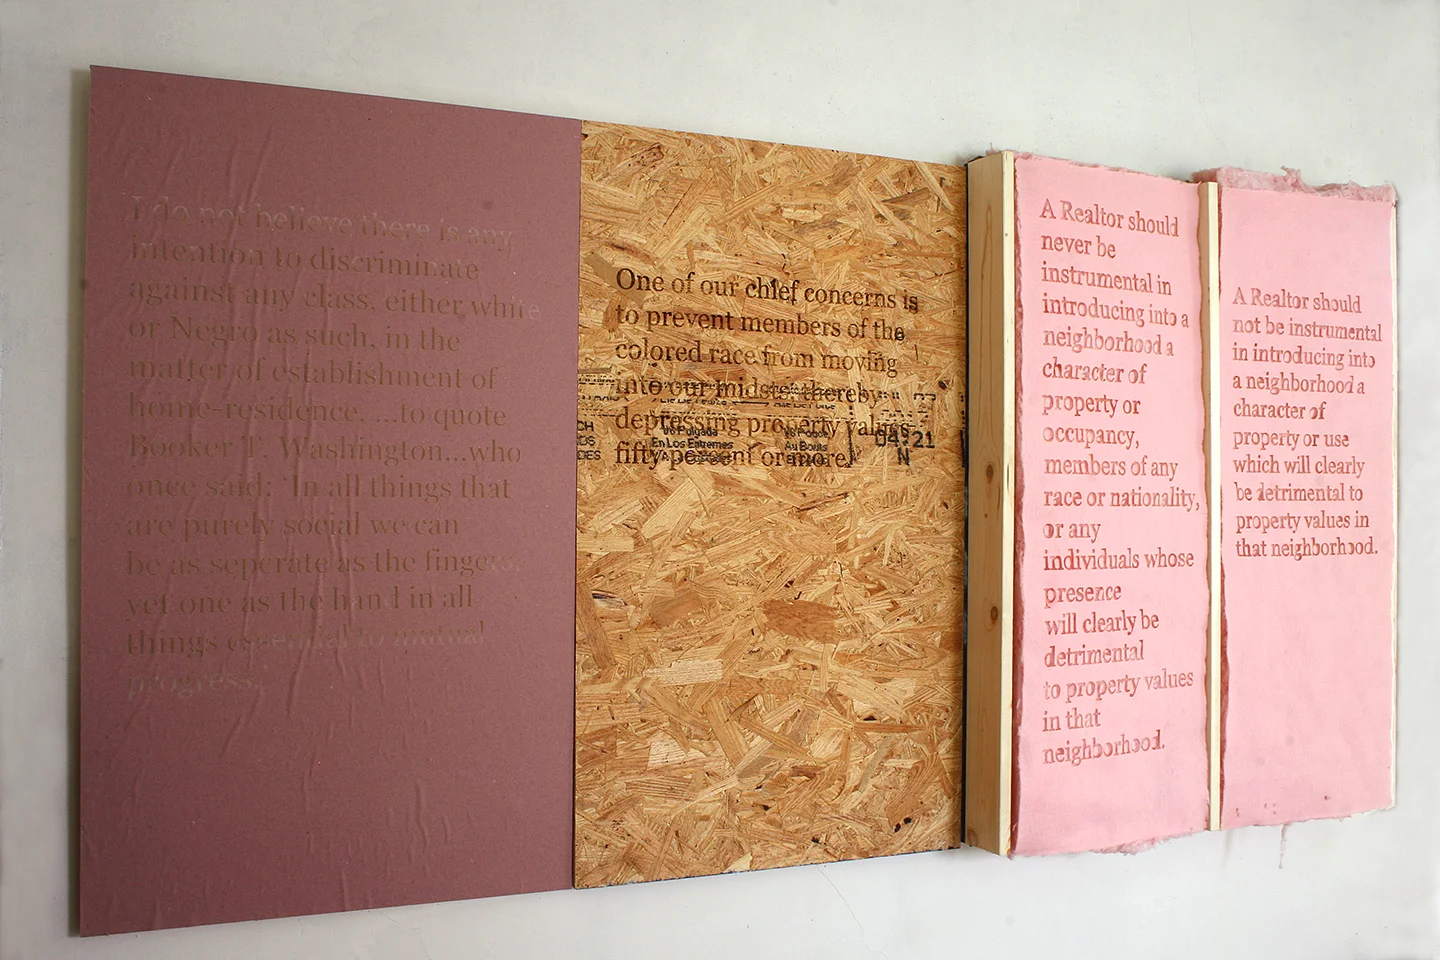 I do not believe there is any
intention to discriminate
against any class, either white
or Negro as such, in the
matter of establishment of
home-residence. ...to quote
Booker T. Washington...who
once said: 'In all things that
are purely social we can
be as seperate as the fingers,
yet one as the hand in all
things essential to mutual
progress.
One of our chief concerns is
to prevent members of the
colored race from moving
into our midsts, thereby
depressing property values
fifty percent or more.
1/8 Pulgada
En Los Extremes
Au Bouts
04 21
N
A Realtor should
never be
instrumental in
introducing into a
neighborhood a
character of
property or
occupancy,
members of any
race or nationality,
or any
individuals whose
presence
will clearly be
detrimental
to property values
in that
neighborhood.
A Realtor should
not be instrumental
in introducing into
a neighborhood a
character of
property or use
which will clearly
be detrimental to
property values in
that neighborhood.